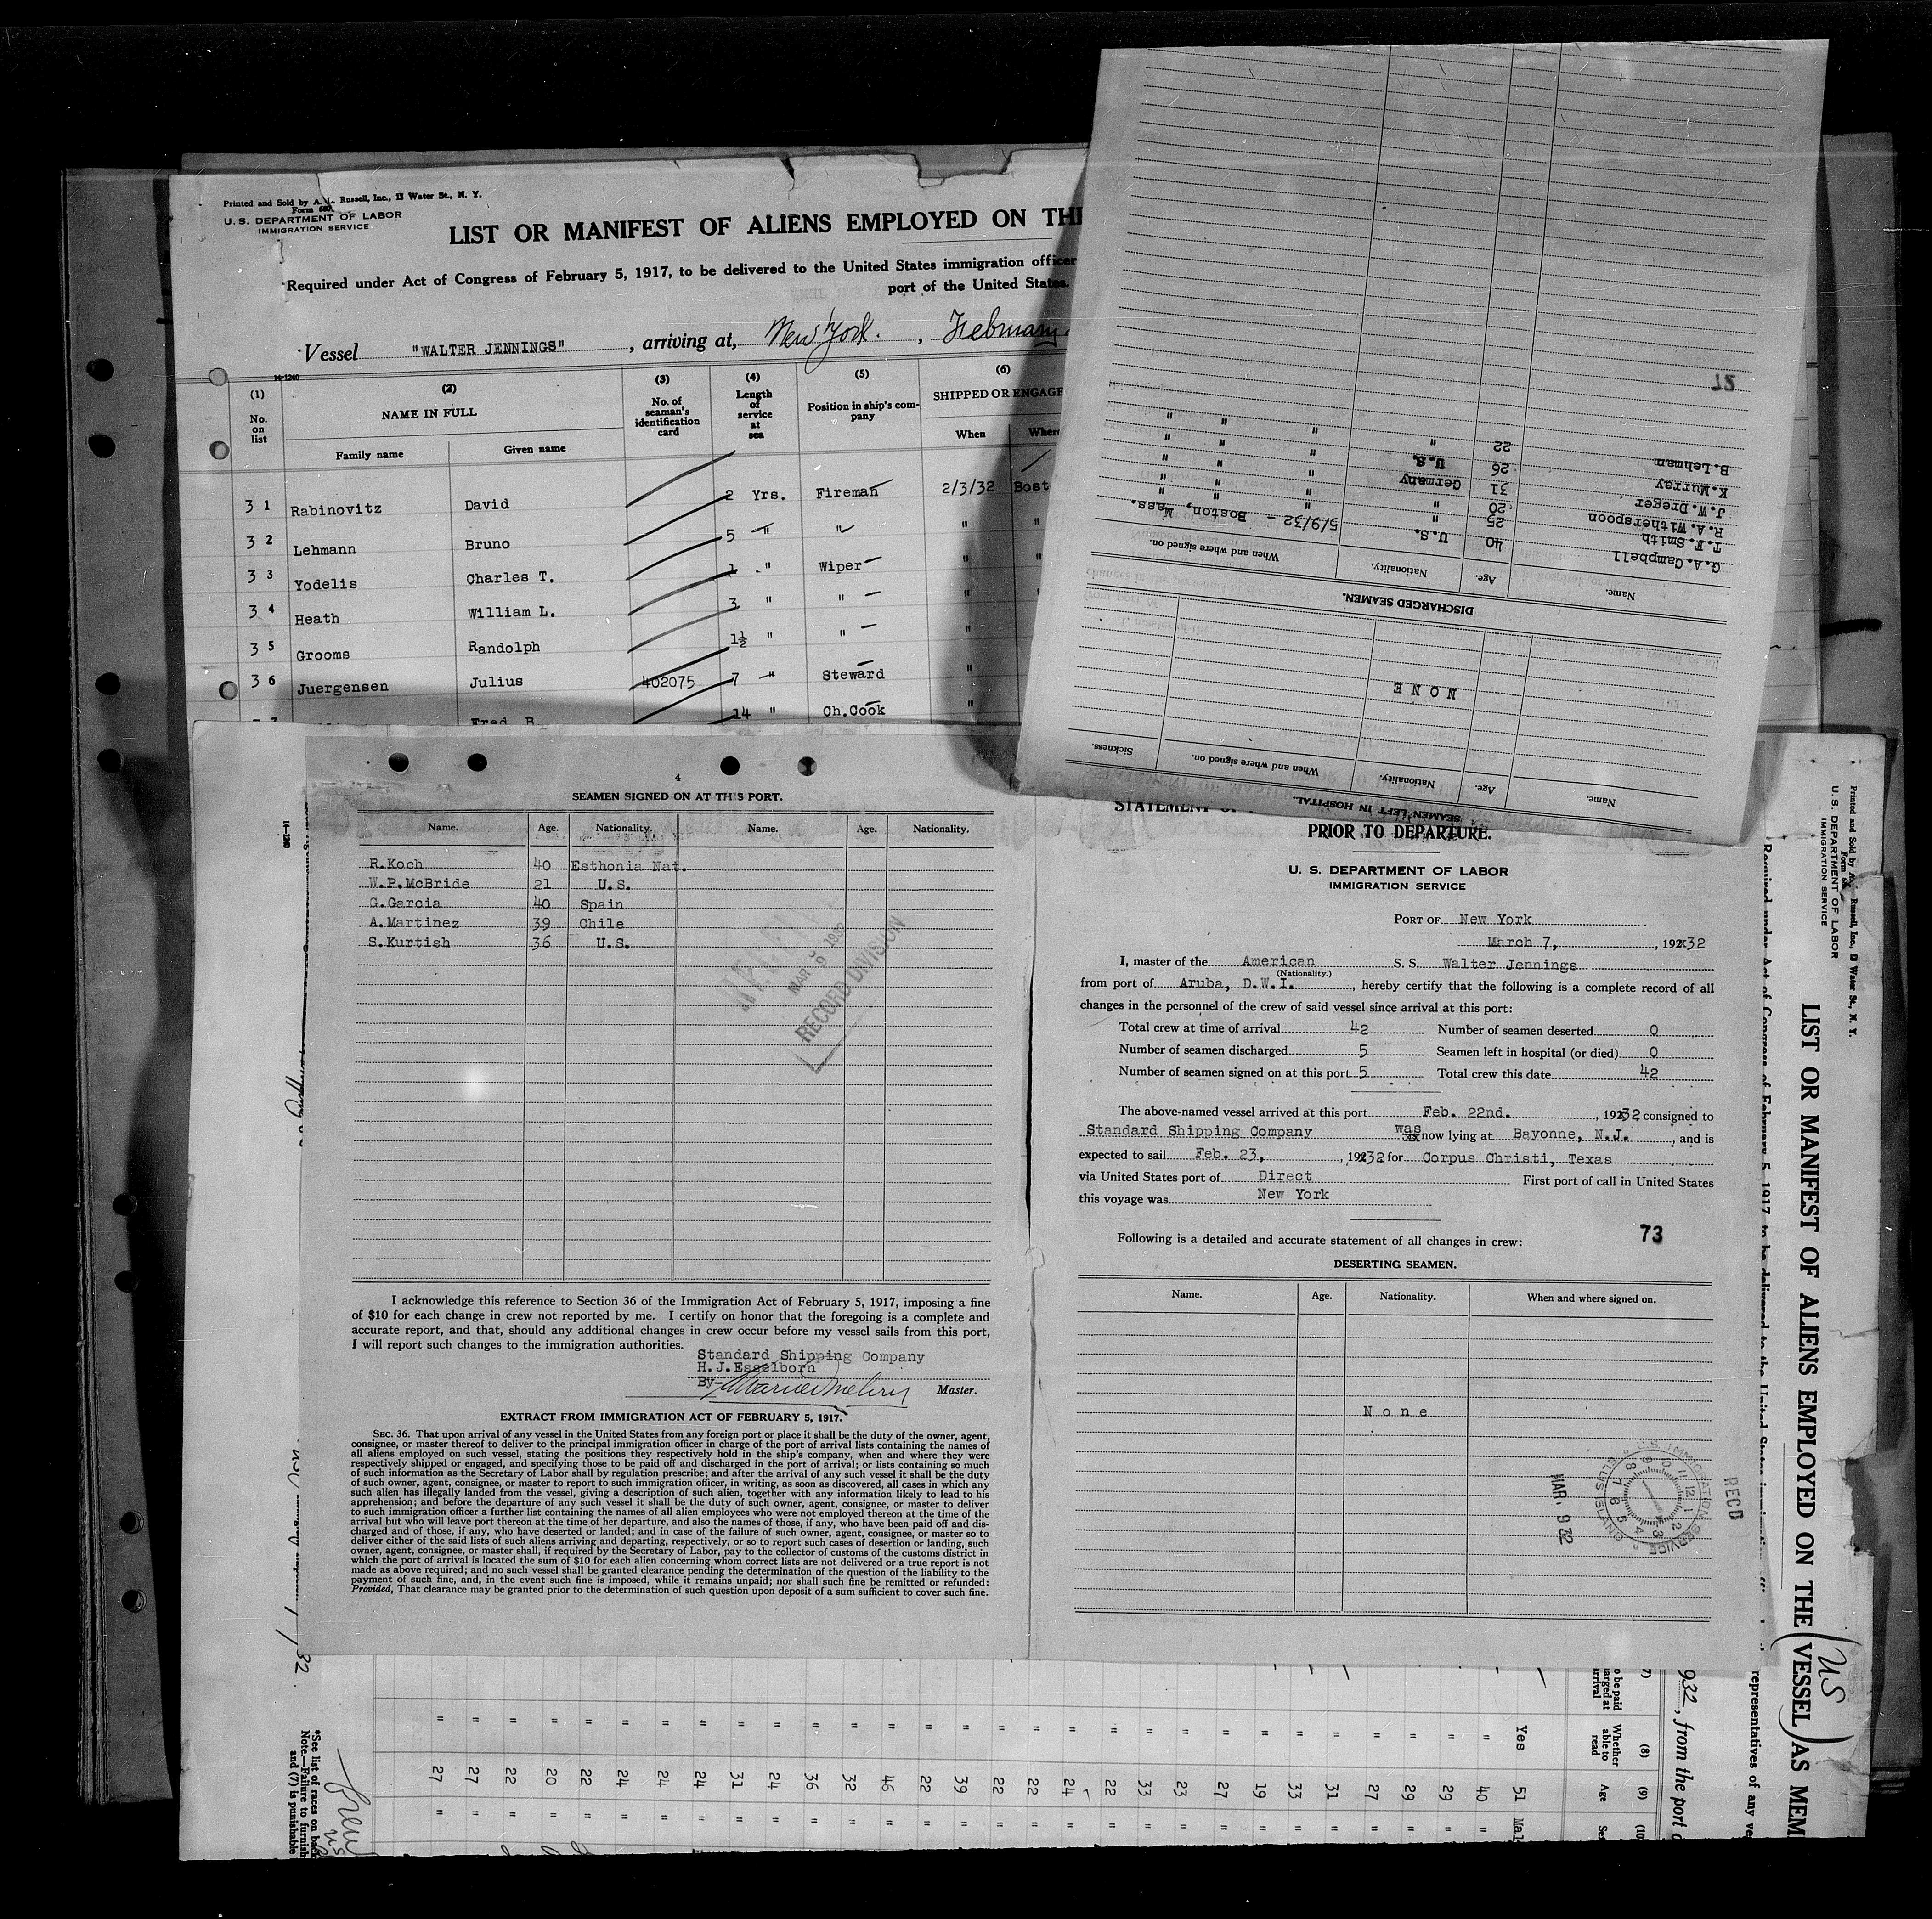 Printed and Sold by A. L. Russell, Inc., 13 Water St., N. Y.
Form 680
U. S. DEPARTMENT OF LABOR
IMMIGRATION SERVICE
LIST OR MANIFEST OF ALIENS EMPLOYED ON THE
Required under Act of Congress of February 5, 1917, to be delivered to the United States immigration officer
port of the United States.
Vessel "WALTER JENNINGS", arriving at, New York. , February
14-1240
(1) (2) (3) (4) (5) (6)
No. on list NAME IN FULL No. of seaman's identification card Length of service at sea Position in ship's company SHIPPED OR ENGAGE
Family name Given name When Where
3 1 Rabinovitz David 2 Yrs. Fireman 2/3/32 Bost
3 2 Lehmann Bruno 5 " " " "
3 3 Yodelis Charles T. 1 " Wiper " "
3 4 Heath William L. 3 " " " "
3 5 Grooms Randolph 1½ " " "
3 6 Juergensen Julius 402075 7 " Steward "
Fred B. 14 " Ch.Cook "
SEAMEN LEFT IN HOSPITAL.
Name. Age. Nationality. When and where signed on. Sickness.
NONE
DISCHARGED SEAMEN.
Name. Age. Nationality. When and where signed on.
G.A.Campbell 40 U.S. 5/9/32 - Boston, Mass.
T.F.Smith 25 " " " "
R.A.Witherspoon 20 " " " "
J.W.Dreger 31 Germany " " "
K.Murray 26 U.S. " " "
B.Lehman 22 " " " "
72
4
SEAMEN SIGNED ON AT THIS PORT.
Name. Age. Nationality. Name. Age. Nationality.
R.Koch 40 Esthonia Nat.
W.P.McBride 21 U.S.
G.Garcia 40 Spain
A.Martinez 39 Chile
S.Kurtish 36 U.S.
MAR 9 1932
RECORD DIVISION
I acknowledge this reference to Section 36 of the Immigration Act of February 5, 1917, imposing a fine
of $10 for each change in crew not reported by me. I certify on honor that the foregoing is a complete and
accurate report, and that, should any additional changes in crew occur before my vessel sails from this port,
I will report such changes to the immigration authorities.
Standard Shipping Company
H.J.Esselborn
By- Master.
EXTRACT FROM IMMIGRATION ACT OF FEBRUARY 5, 1917.
SEC. 36. That upon arrival of any vessel in the United States from any foreign port or place it shall be the duty of the owner, agent,
consignee, or master thereof to deliver to the principal immigration officer in charge of the port of arrival lists containing the names of
all aliens employed on such vessel, stating the positions they respectively hold in the ship's company, when and where they were
respectively shipped or engaged, and specifying those to be paid off and discharged in the port of arrival; or lists containing so much
of such information as the Secretary of Labor shall by regulation prescribe; and after the arrival of any such vessel it shall be the duty
of such owner, agent, consignee, or master to report to such immigration officer, in writing, as soon as discovered, all cases in which any
such alien has illegally landed from the vessel, giving a description of such alien, together with any information likely to lead to his
apprehension; and before the departure of any such vessel it shall be the duty of such owner, agent, consignee, or master to deliver
to such immigration officer a further list containing the names of all alien employees who were not employed thereon at the time of the
arrival but who will leave port thereon at the time of her departure, and also the names of those, if any, who have been paid off and dis-
charged and of those, if any, who have deserted or landed; and in case of the failure of such owner, agent, consignee, or master so to
deliver either of the said lists of such aliens arriving and departing, respectively, or so to report such cases of desertion or landing, such
owner, agent, consignee, or master shall, if required by the Secretary of Labor, pay to the collector of customs of the customs district in
which the port of arrival is located the sum of $10 for each alien concerning whom correct lists are not delivered or a true report is not
made as above required; and no such vessel shall be granted clearance pending the determination of the question of the liability to the
payment of such fine, and, in the event such fine is imposed, while it remains unpaid; nor shall such fine be remitted or refunded:
Provided, That clearance may be granted prior to the determination of such question upon deposit of a sum sufficient to cover such fine.
STATEMENT O
PRIOR TO DEPARTURE.
U. S. DEPARTMENT OF LABOR
IMMIGRATION SERVICE
PORT OF New York
March 7, , 192x32
I, master of the American S. S. Walter Jennings
(Nationality.)
from port of Aruba, D.W.I. , hereby certify that the following is a complete record of all
changes in the personnel of the crew of said vessel since arrival at this port:
Total crew at time of arrival 42 Number of seamen deserted 0
Number of seamen discharged 5 Seamen left in hospital (or died) 0
Number of seamen signed on at this port 5 Total crew this date 42
The above-named vessel arrived at this port Feb. 22nd. , 19232 consigned to
Standard Shipping Company was now lying at Bayonne, N.J. , and is
expected to sail Feb. 23, , 19232 for Corpus Christi, Texas
via United States port of Direct First port of call in United States
this voyage was New York
73
Following is a detailed and accurate statement of all changes in crew:
DESERTING SEAMEN.
Name. Age. Nationality. When and where signed on.
None
REC'D
U.S. IMMIGRATION SERVICE ELLIS ISLAND
MAR 9 32
Printed and Sold by A. L. Russell, Inc., 13 Water St., N. Y.
U. S. DEPARTMENT OF LABOR
IMMIGRATION SERVICE
LIST OR MANIFEST OF ALIENS EMPLOYED ON THE VESSEL AS MEM
US
Required under Act of Congress of February 5, 1917, to be delivered to the United States immigration
representatives of any ve
932, from the port o
7) (8) (9) (10
o be paid
arged at
rrival
Whether able to read
Age
Se
Yes 51 Mal
" 40 "
" 29 "
" 29 "
" 27 "
" 31 "
" 33 "
" 19 "
" 27 "
" 23 "
" 33 "
" 22 "
" 24 "
" 22 "
" 22 "
" 39 "
" 22 "
" 46 "
" 32 "
" 36 "
" 24 "
" 31 "
" 24 "
" 24 "
" 24 "
" 22 "
" 20 "
" 22 "
" 27 "
" 27 "
*See list of races on back
Note.—Failure to furnish
and (7) is punishable
14-1240
32